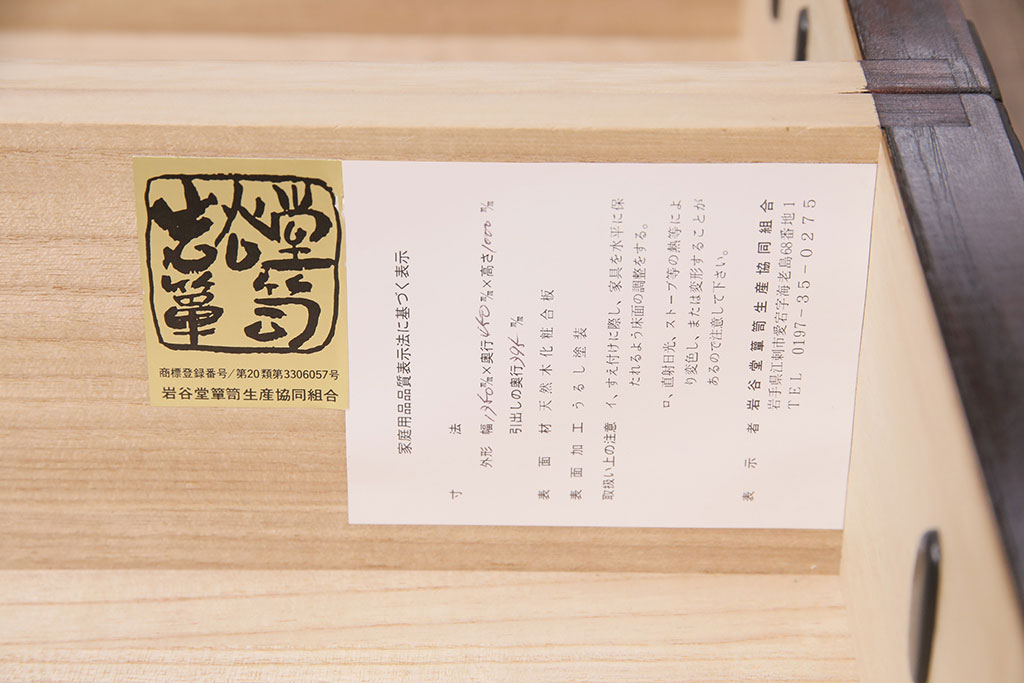 岩谷堂
箪笥
商標登録番号／第20類第3306057号
岩谷堂箪笥生産協同組合
家庭用品品質表示法に基づく表示
寸法
外形 幅1350㎜×奥行450㎜×高さ1000㎜
引出しの奥行395㎜
表面材 天然木化粧合板
表面加工 うるし塗装
取扱い上の注意 イ、すえ付けに際し、家具を水平に保
たれるよう床面の調整をする。
ロ、直射日光、ストーブ等の熱等によ
り変色し、または変形することが
あるので注意して下さい。
表示者 岩谷堂箪笥生産協同組合
岩手県江刺市愛宕字海老島68番地1
TEL 0197-35-0275